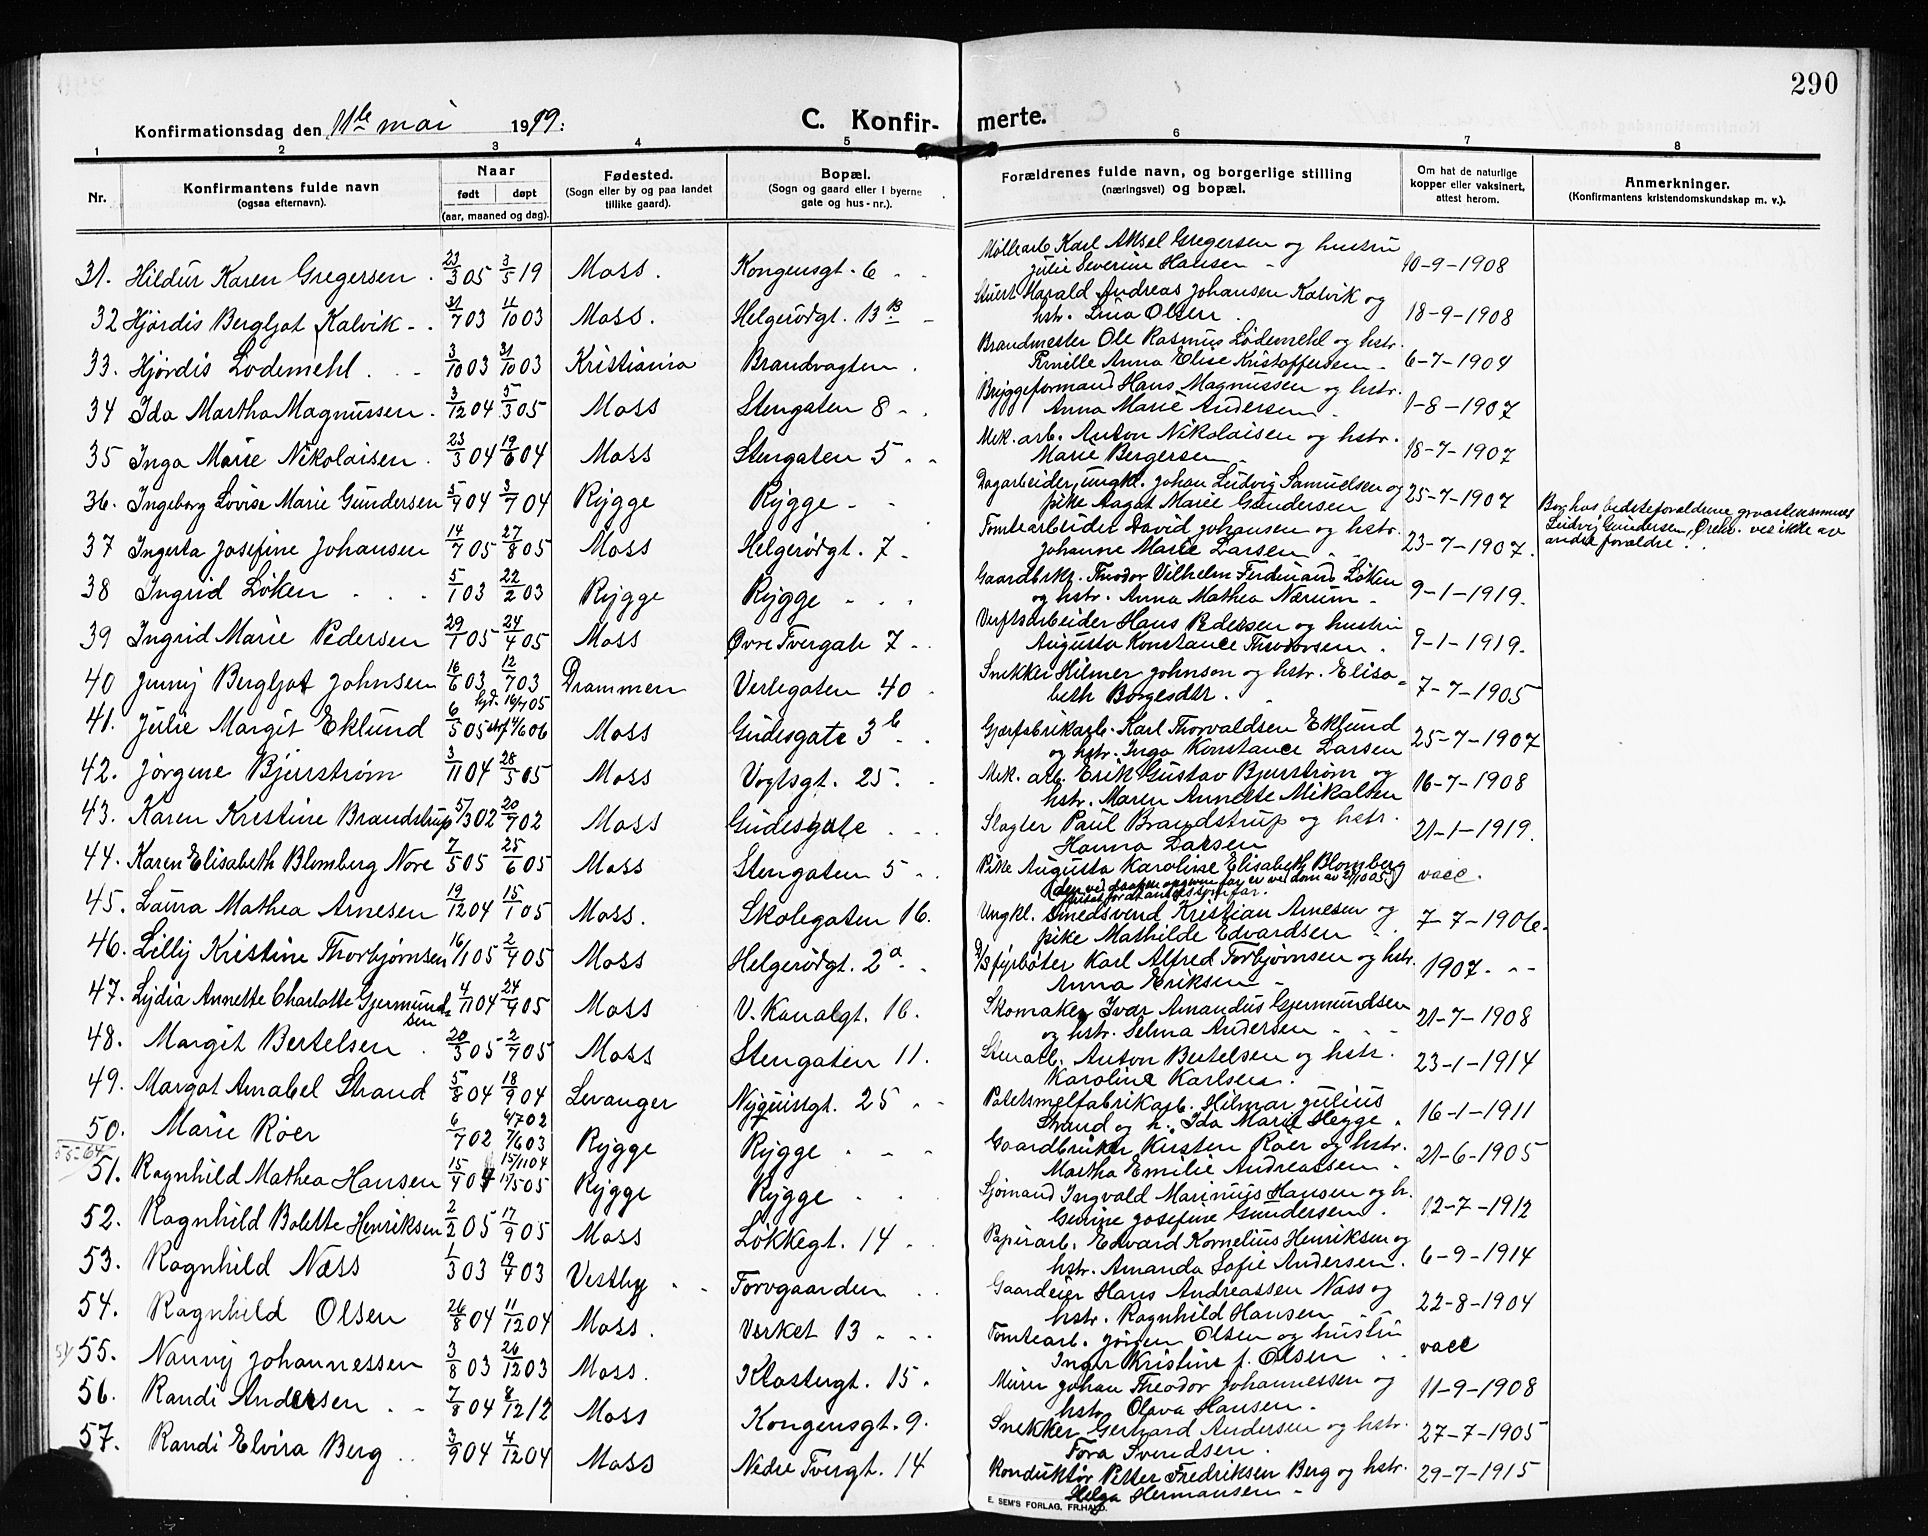 290
Konfirmationsdag den 11te mai 1919.
C. Konfirmerte.
1 2 3 4 5 6 7 8
Nr.
Konfirmantens fulde navn
(ogsaa efternavn).
Naar
født døpt
(aar, maaned og dag).
Fødested.
(Sogn eller by og paa landet
tillike gaard).
Bopæl.
(Sogn og gaard eller i byerne
gate og hus-nr.).
Forældrenes fulde navn, og borgerlige stilling
(næringsvei) og bopæl.
Om hat de naturlige
kopper eller vaksinert,
attest herom.
Anmerkninger.
(Konfirmantens kristendomskundskap m. v.).
31. Hildur Karen Gregersen 23/3 05 3/5 19 Moss. Kongensgt. 6 Møllearb. Karl Aksel Gregersen og hustru
Julie Severine Hansen 10-9-1908
32 Hjørdis Bergljot Kalvik 31/7 03 11/10 03 Moss. Helgerødgt. 13 B Stuert Harald Andreas Johansen Kalvik og
hstr. Lina Olsen 18-9-1908
33. Hjørdis Lodemehl 3/10 03 31/10 03 Kristiania Brandvagten Brandmester Ole Rasmus Lødemehl og hstr.
Pernille Anna Elise Kristoffersen 6-7-1904
34 Ida Martha Magnussen 3/12 04 5/3 05 Moss Stengaten 8 Bryggeformand Hans Magnussen og hstr.
Anna Marie Andersen 1-8-1907
35 Inga Marie Nikolaisen 23/3 04 19/6 04 Moss Stengaten 5 Mek. arb. Anton Nikolaisen og hstr.
Marie Bergersen 18-7-1907
36. Ingeborg Lovise Marie Gundersen 5/4 04 3/7 04 Rygge Rygge Dagarbeider, ungk. Johan Ludvig Samuelsen og
pike Aagot Marie Gundersen 25-7-1907 Bor hos bedsteforældrene
Ludvig Gundersen, ves ikke av
andre forældre.
37 Ingerta Josefine Johansen 14/7 05 27/8 05 Moss Helgerødgt. 7 Tomtearbeider David Johansen og hstr.
Johanne Marie Larsen 23-7-1907.
38 Ingrid Løken 5/1 03 22/2 03 Rygge Rygge Gaardbrkr. Theodor Vilhelm Ferdinand Løken
og hstr. Anna Mathea Nærum 9-1-1919.
39 Ingrid Marie Pedersen 29/1 05 24/4 05 Moss Øvre Tvergate 7 Verftsarbeider Hans Pedersen og hustru
Augusta Konstance Theodorsen 9-1-1919.
40 Jenny Bergljot Johnsen 16/6 03 12/7 03 Drammen Verlegaten 40 Snekker Hilmer Johnson og hstr. Elisa-
beth Borgesdtr. 7-7-1905
41. Julie Margit Eklund 6/5 05 hjd. 16/7 05 4/6 06 Moss Gudesgate 3 b Gjærfabrikarb. Karl Thorvaldsen Eklund
og hstr. Inga Konstance Larsen 25-7-1907
42. Jørgine Bjerrstrøm 3/11 04 28/5 05 Moss Vogtsgt. 25. Mek. arb. Erik Gustav Bjerstrøm og
hstr. Maren Annette Mikalsen 16-7-1908
43. Karen Kristine Brandstrup 5/3 02 20/7 02 Moss Gudesgate Slagter Paul Brandstrup og hstr.
Hanna Larsen 21-1-1919.
44. Karen Elisabeth Blomberg Nore 7/5 05 25/6 05 Moss Stengaten 5 Pike Augusta Karoline Elisabeth Blomberg
(den ved daapen opgivne far er ved dom av 21/10 05
som far. vacc.
45. Laura Mathea Arnesen 19/12 04 15/1 05 Moss. Skolegaten 16. Ungkl. smedsvend Kristian Arnesen og
pike Mathilde Edvardsen 7-7-1906.
46. Lilly Kristine Thorbjørnsen 16/1 05 2/4 05 Moss Helgerødgt. 2 a D/S fyrbøter Karl Alfred Torbjørnsen og hstr.
Anna Eriksen 1907.
47. Lydia Annette Charlotte Gjermund-
sen 4/11 04 24/9 05 Moss V. Kanalgt. 16. Skomaker Ivar Amandus Gjermundsen
og hstr. Selma Andersen 21-7-1908
48. Margit Bertelsen 20/3 05 2/7 05 Moss Stengaten 11. Stenarb. Anton Bertelsen og hstr.
Karoline Karlsen. 23-1-1914
49. Margot Amabel Strand 5/8 04 18/9 04 Levanger Nyquistgt. 25 Potetsmelfabrikarb. Hilmar Julius
Strand og h. Ida Marie Hegge 16-1-1911
50. Marie Roer 6/7 02 6/7 02 7/6 03 Rygge Rygge Gaardbruker Kirsten Roer og hstr.
Martha Emilie Andreassen 21-6-1905
51. Ragnhild Mathea Hansen 15/4 04 15/11 04 17/5 05 Rygge Rygge Sjømand Ingvald Marinius Hansen og h.
Gunine Josefine Gundersen 12-7-1912
52. Ragnhild Bolette Henriksen 2/2 05 17/9 05 Moss Løkkegt. 14 Papirarb. Edvard Kornelius Henriksen og
hstr. Amanda Sofie Andersen. 6-9-1914
53. Ragnhild Næss 1/3 03 19/4 03 Vestby Torvgaarden Gaardeier Hans Andreassen Næss og
hstr. Ragnhild Hansen 22-8-1904
54. Ragnhild Olsen 26/8 04 11/12 04 Moss. Verket 13 Tomtearb. Jørgen Olsen og hustru
Inger Kristine f. Olsen vacc
55. Nanny Johannessen 3/8 03 26/12 03 Moss. Klostergt. 15. Murer Johan Theodor Johannessen og
hstr. Olava Hansen. 11-9-1908
56. Randi Andersen 7/8 04 8/12 12 Moss Kongensgt. 9. Snekker Gerhard Andersen og hstr.
Tora Svendsen. 27-7-1905
57. Randi Elvira Berg 3/9 04 4/12 04 Moss Nedre Tvergt. 14 Konduktør Petter Fredriksen Berg og hstr.
Helga Hermansen 29-7-1915
E. SEM'S FORLAG, FR.HALD.